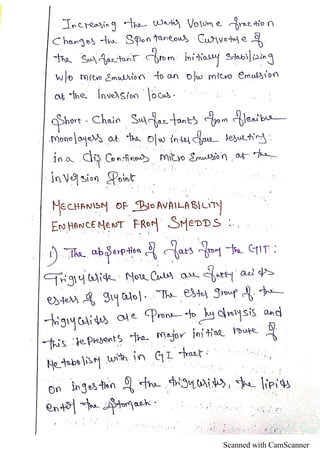 Increasing the water Volume fraction
Changes the Spontaneous Curvature of
the Surfactant from initially Stabilizing
w/o micro Emulsion to an o/w micro emulsion
at the Inversion locus.
Short-Chain Surfactants form flexible
monolayers at the o/w interface resulting
in a dis Continous micro Emulsion at the
inversion Point
MECHANISM OF BIOAVAILABILITY
ENHANCEMENT FROM SMEDDS :
1) The absorption of fats from the GIT :
Triglyceride Molecules are fatty acids
esters of glycerol. The ester group of the
triglycerides are Prone to hydrolysis and
this represents the major initial route of
Metabolism with in GI tract.
On ingestion of the triglycerides, the lipids
enter the Stomach.
Scanned with CamScanner